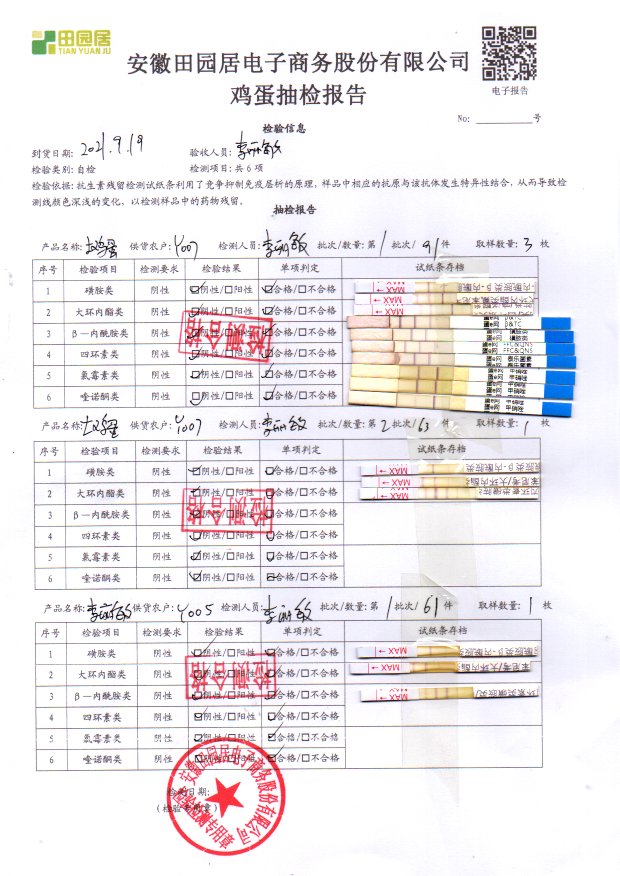 田园居
TIAN YUAN JU
安徽田园居电子商务股份有限公司
鸡蛋抽检报告
电子报告
No: 号
检验信息
到货日期: 2021.9.19 验收人员:
检验类别: 自检 检测项目: 共 6 项
检验依据: 抗生素残留检测试纸条利用了竞争抑制免疫层析的原理, 样品中相应的抗原与该抗体发生特异性结合, 从而导致检
测线颜色深浅的变化, 以检测样品中的药物残留。
抽检报告
产品名称: 供货农户: Y007 检测人员: 批次/数量: 第 1 批次/ 91 件 取样数量: 3 枚
序号 检验项目 检测要求 检验结果 单项判定 试纸条存档
1 磺胺类 阴性 ☑阴性/☐阳性 ☑合格/☐不合格
2 大环内酯类 阴性 ☑阴性/☐阳性 ☑合格/☐不合格
3 β—内酰胺类 阴性 ☑阴性/☐阳性 ☑合格/☐不合格
4 四环素类 阴性 ☑阴性/☐阳性 ☑合格/☐不合格
5 氯霉素类 阴性 ☑阴性/☐阳性 ☑合格/☐不合格
6 喹诺酮类 阴性 ☑阴性/☐阳性 ☑合格/☐不合格
检测合格
MAX
MAX
MAX
产品名称: 供货农户: Y007 检测人员: 批次/数量: 第 2 批次/ 63 件 取样数量: 1 枚
序号 检验项目 检测要求 检验结果 单项判定 试纸条存档
1 磺胺类 阴性 ☑阴性/☐阳性 ☑合格/☐不合格
2 大环内酯类 阴性 ☑阴性/☐阳性 ☑合格/☐不合格
3 β—内酰胺类 阴性 ☑阴性/☐阳性 ☑合格/☐不合格
4 四环素类 阴性 ☑阴性/☐阳性 ☑合格/☐不合格
5 氯霉素类 阴性 ☑阴性/☐阳性 ☑合格/☐不合格
6 喹诺酮类 阴性 ☑阴性/☐阳性 ☑合格/☐不合格
检测合格
MAX
MAX
MAX
产品名称: 供货农户: Y005 检测人员: 批次/数量: 第 1 批次/ 61 件 取样数量: 1 枚
序号 检验项目 检测要求 检验结果 单项判定 试纸条存档
1 磺胺类 阴性 ☑阴性/☐阳性 ☑合格/☐不合格
2 大环内酯类 阴性 ☑阴性/☐阳性 ☑合格/☐不合格
3 β—内酰胺类 阴性 ☑阴性/☐阳性 ☑合格/☐不合格
4 四环素类 阴性 ☑阴性/☐阳性 ☑合格/☐不合格
5 氯霉素类 阴性 ☑阴性/☐阳性 ☑合格/☐不合格
6 喹诺酮类 阴性 ☑阴性/☐阳性 ☑合格/☐不合格
检测合格
MAX
MAX
MAX
检测日期:
安徽田园居电子商务股份有限公司